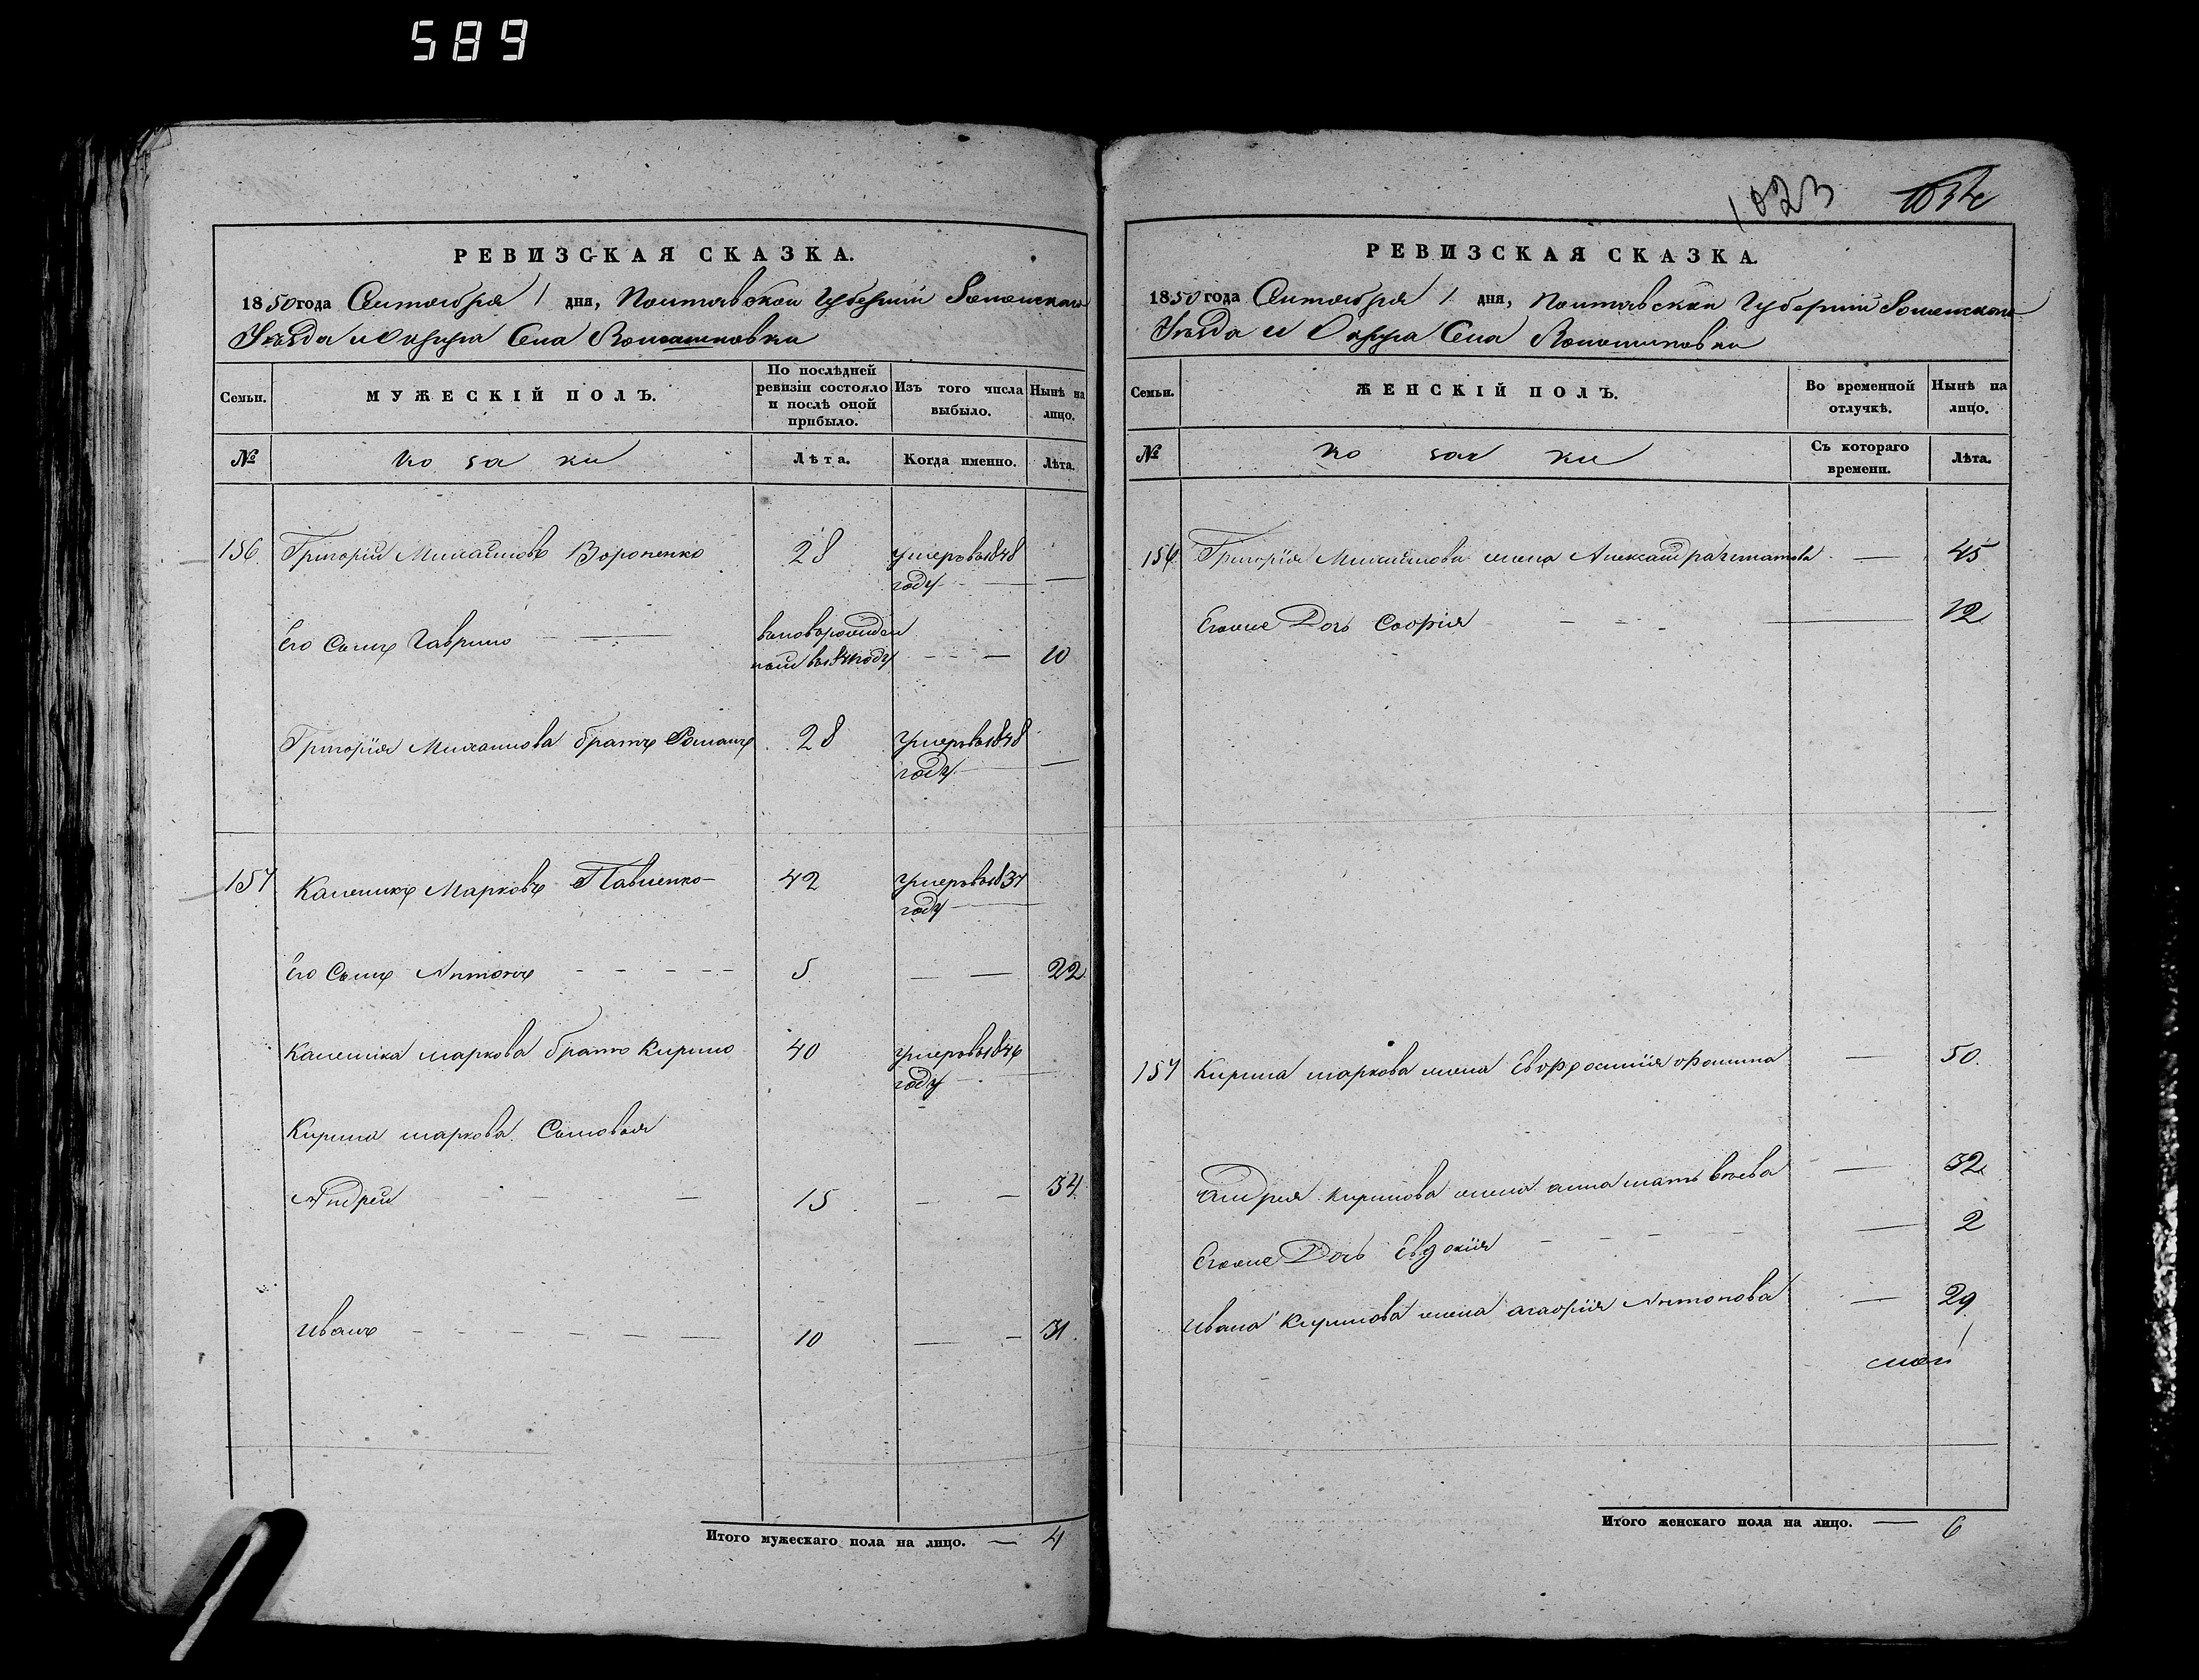 589
1023
1034
РЕВИЗСКАЯ СКАЗКА.
1850 года Сентября 1 дня, Полтавской Губернии Роменскаго
Уезда и Округа Села Ромашковки
Семьи. МУЖЕСКІЙ ПОЛЪ. По послѣдней ревизіи состояло и послѣ оной прибыло. Изъ того числа выбыло. Нынѣ на лицо.
№ козаки Лѣта. Когда именно. Лѣта.
156 Григорій Михайловъ Вороненко 28 умеръ въ 1848
году —
Его Сынъ Гаврило — вновь рожден
ной въ 184 году — — 10
Григорія Михайлова братъ Романъ 28 умеръ въ 1848
году —
157 Каленикъ Марковъ Павленко 42 умеръ въ 1837
году
Его Сынъ Антонъ 5 — — 22
Каленика маркова братъ Кирило 40 умеръ въ 1846
году
Кирила маркова Сыновья
Андрей 15 — — 34
Иванъ 10 — — 31
Итого мужескаго пола на лицо. — 4
РЕВИЗСКАЯ СКАЗКА.
1850 года Сентября 1 дня, Полтавской Губернии Роменскаго
Уезда и Округа Села Ромашковки
Семьи. ЖЕНСКІЙ ПОЛЪ. Во временной отлучкѣ. Нынѣ на лицо.
№ козаки Съ котораго времени. Лѣта.
156 Григорія Михайлова жена Александра — 45
Егоже Дочь Софія — 12
157 Кирила маркова жена Евфросинія Фомина — 50
Андрея кирилова жена анна матвѣева — 32
Егоже Дочь Евдокія — 2
Ивана Кирилова жена агафія Антонова — 29
Итого женскаго пола на лицо. — 6